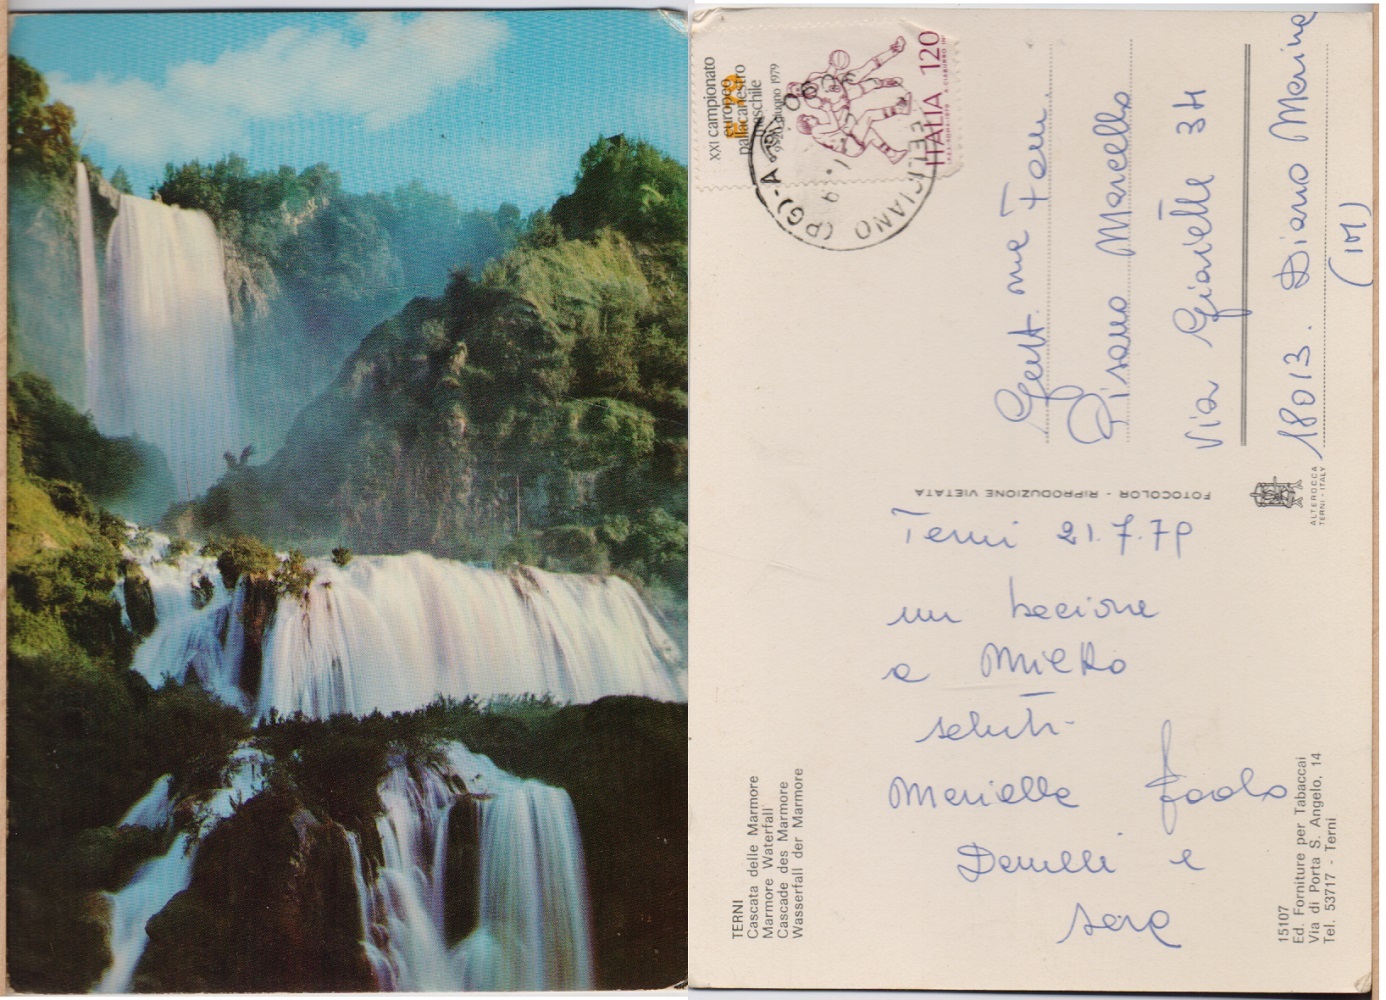 XXI campionato
europeo
pallacanestro
maschile
9-20 giugno 1979
ITALIA 120
FELICIANO (PG) - A
Gent. me Fam.
Pisano Marcello
Via Gioiette 34
18013. Diano Marina
(IM)
FOTOCOLOR - RIPRODUZIONE VIETATA
ALTEROCCA
TERNI - ITALY
Terni 21.7.79
un bacione
a Mirko
saluti
Mariella Paolo
Danilli e
Sara
TERNI
Cascata delle Marmore
Marmore Waterfall
Cascade des Marmore
Wasserfall der Marmore
15107
Ed. Forniture per Tabaccai
Via di Porta S. Angelo, 14
Tel. 53717 - Terni